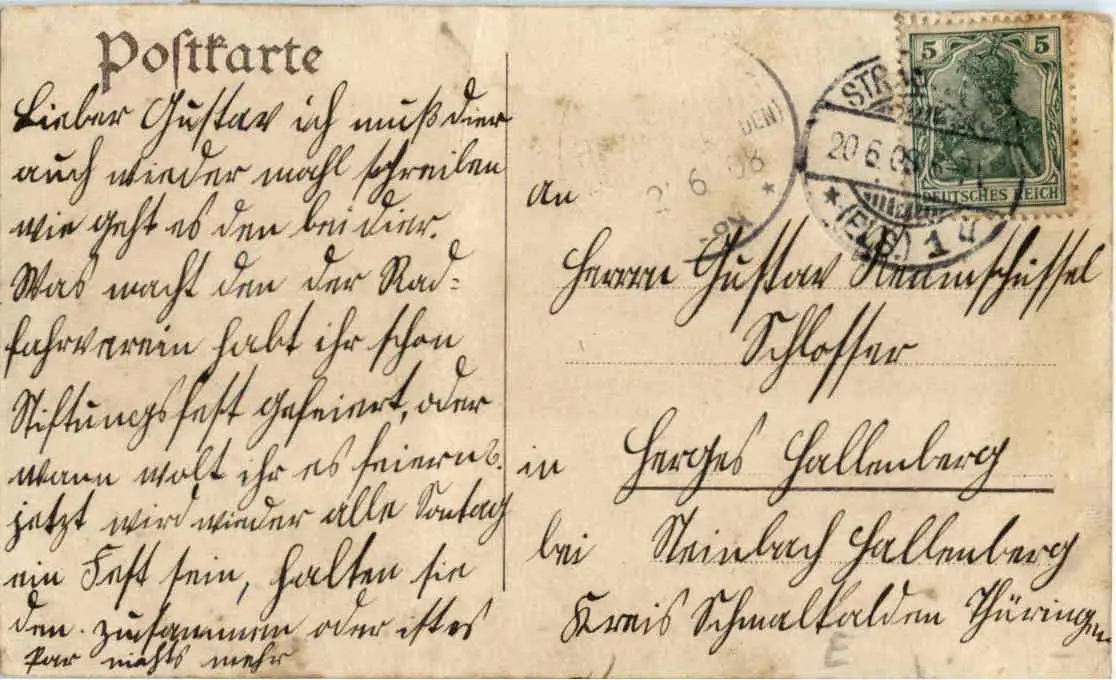 Postkarte
Lieber Gustav ich muß dier
auch wieder mahl schreiben
wie geht es den bei dier.
Was macht den der Rad=
fahrverein habt ihr schon
Stiftungsfest gefeiert, oder
wann wolt ihr es feiern
jetzt wird wieder alle Sontag
ein Fest sein, halten sie
den zusammen oder ist es
gar nichts mehr
DEN)
6 08
5 5
DEUTSCHES REICH
STRA
20 6 08
(ELS.) 1 u
An
Herrn Gustav Rennschüssel
Schlosser
in Herges Hallenberg
bei Steinbach Hallenberg
Kreis Schmalkalden Thüringen